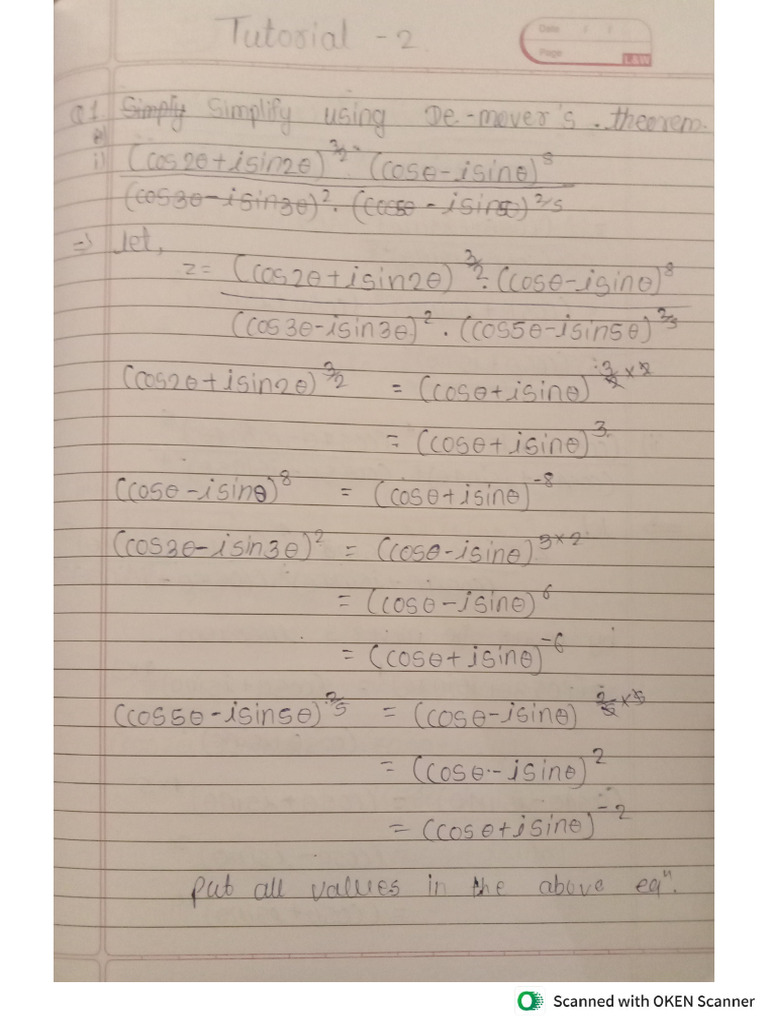 Tutorial - 2
Date / /
Page
LAW
Q1 Simply Simplify using De-mover's theorem.
a)
i) (cos2θ+isin2θ)^3/2 · (cosθ-isinθ)^8
(cos3θ-isin3θ)^2 · (cos5θ-isin5θ)^2/5
⇒ let,
z = (cos2θ+isin2θ)^3/2 · (cosθ-isinθ)^8
(cos3θ-isin3θ)^2 · (cos5θ-isin5θ)^2/5
(cos2θ+isin2θ)^3/2 = (cosθ+isinθ)^3/2 × 2
= (cosθ+isinθ)^3
(cosθ-isinθ)^8 = (cosθ+isinθ)^-8
(cos3θ-isin3θ)^2 = (cosθ-isinθ)^3×2
= (cosθ-isinθ)^6
= (cosθ+isinθ)^-6
(cos5θ-isin5θ)^2/5 = (cosθ-isinθ)^2/5 ×5
= (cosθ-isinθ)^2
= (cosθ+isinθ)^-2
put all values in the above eqⁿ.
Scanned with OKEN Scanner